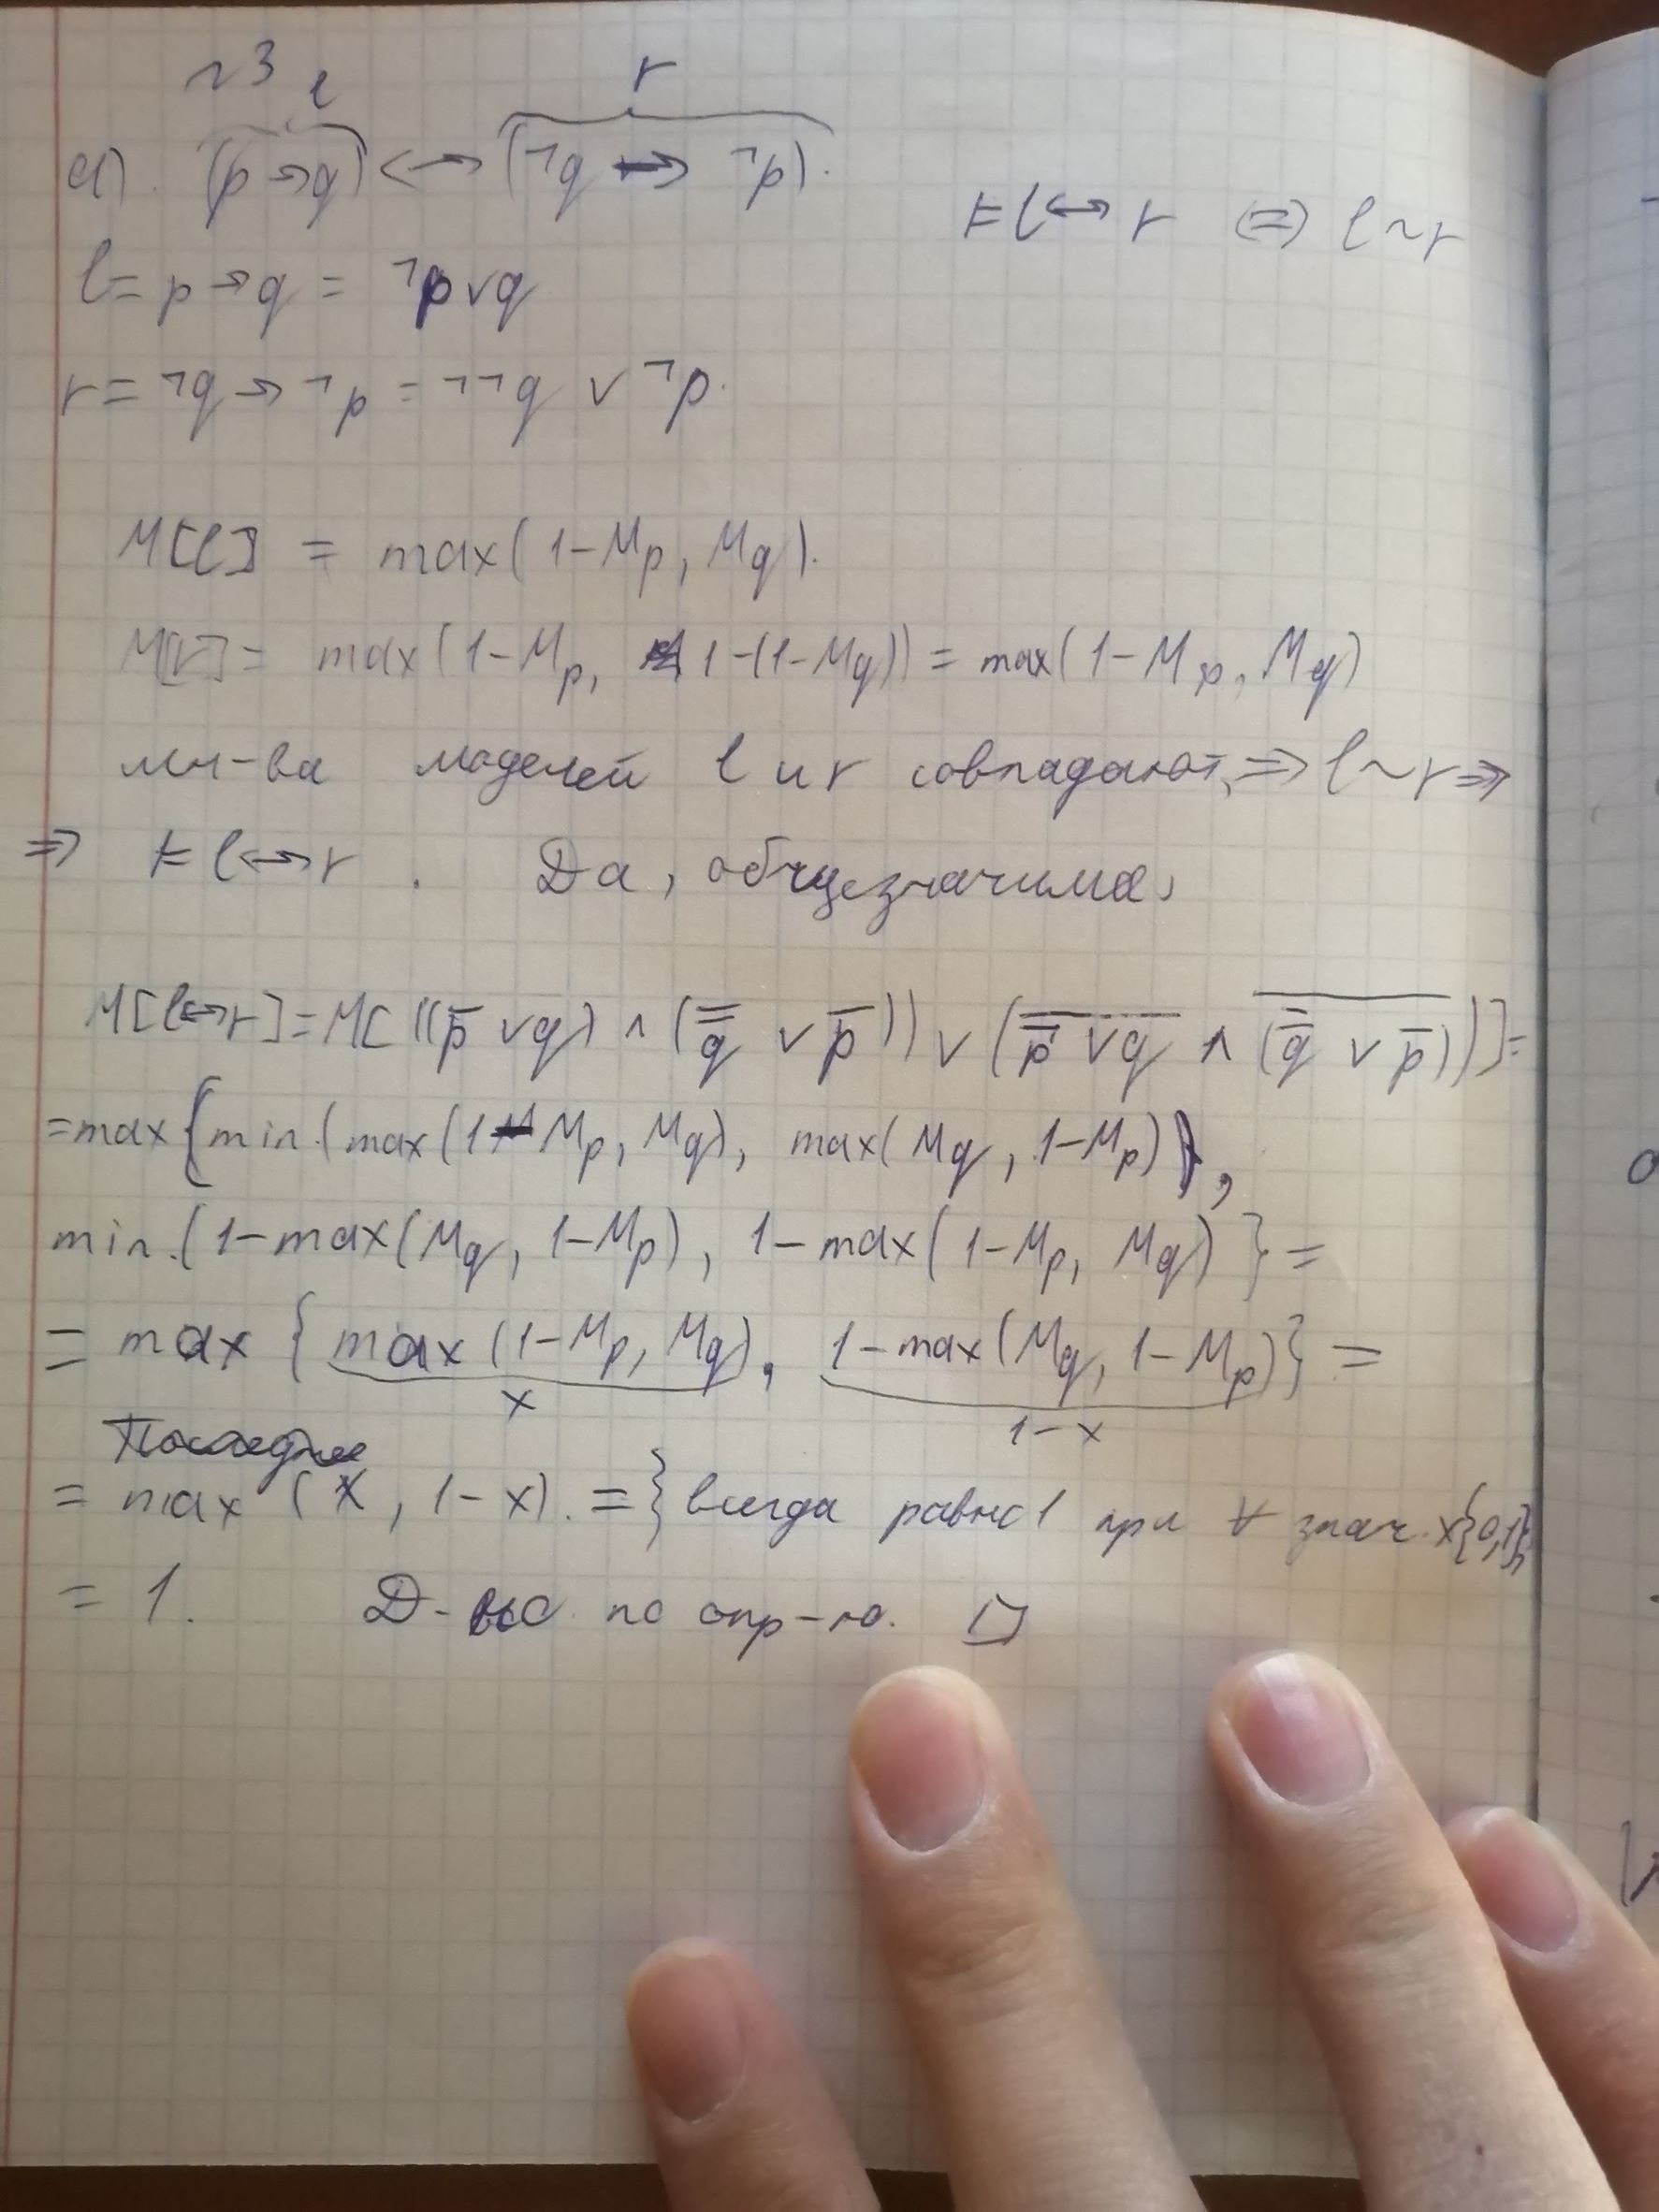 №3
l r
а). (p → q) ↔ (¬q → ¬p).
⊨ l ↔ r ⇔ l ~ r
l = p → q = ¬p ∨ q
r = ¬q → ¬p = ¬¬q ∨ ¬p.
M[l] = max(1-Mp, Mq).
M[r] = max(1-Mp, 1-(1-Mq)) = max(1-Mp, Mq)
мн-ва моделей l и r совпадают, ⇒ l ~ r ⇒
⇒ ⊨ l ↔ r. Да, общезначима.
M[l↔r] = M[((p̅ ∨ q) ∧ (q̿ ∨ p̅)) ∨ (\overline{p̅ ∨ q} ∧ \overline{(q̿ ∨ p̅)})] =
= max{min(max(1-Mp, Mq), max(Mq, 1-Mp)),
min(1-max(Mq, 1-Mp), 1-max(1-Mp, Mq)} =
= max {max(1-Mp, Mq), 1-max(Mq, 1-Mp)} =
x 1-x
= max (x, 1-x). = } всегда равно 1 при ∀ знач. x{0,1}
= 1. Д-во по опр-ю. □